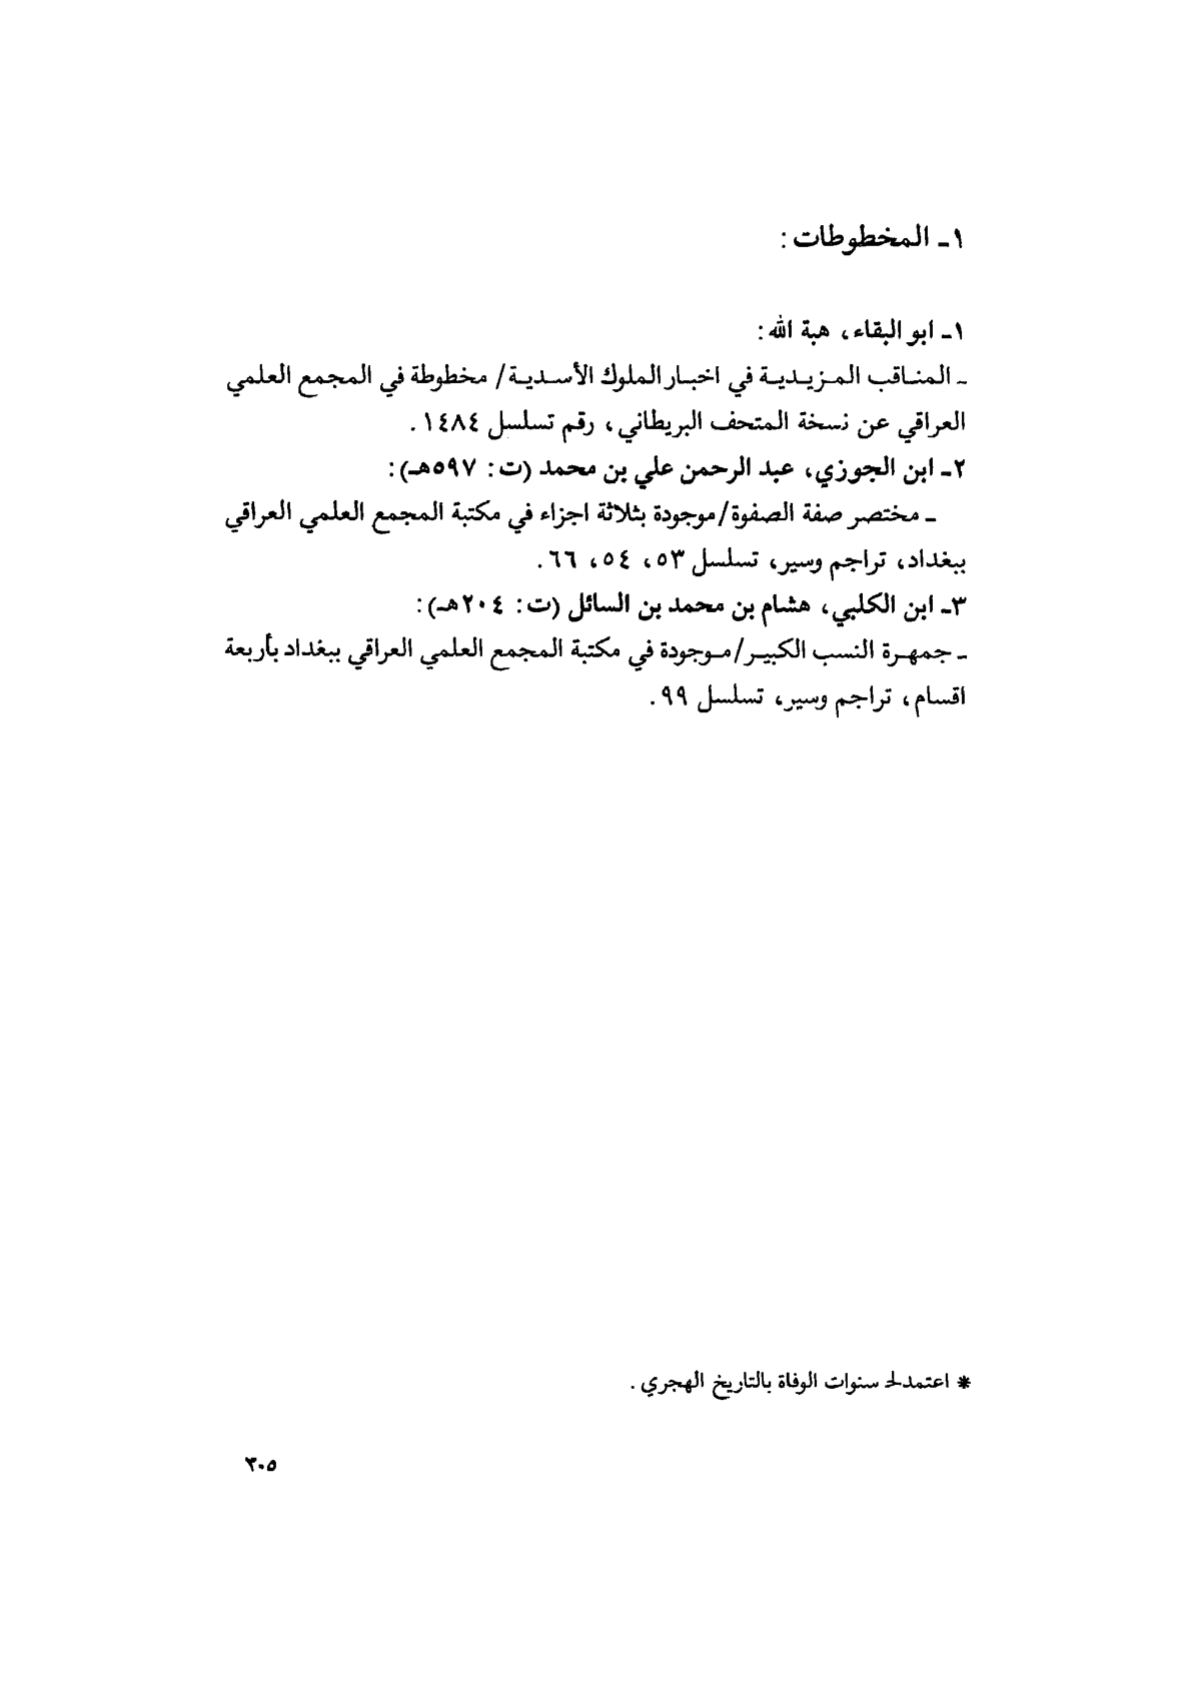 ١ـ المخطوطات :
١ـ ابو البقاء، هبة الله:
ـ المناقب المزيدية في اخبار الملوك الأسدية/ مخطوطة في المجمع العلمي
العراقي عن نسخة المتحف البريطاني، رقم تسلسل ١٤٨٤.
٢ـ ابن الجوزي، عبد الرحمن علي بن محمد (ت: ٥٩٧هـ):
ـ مختصر صفة الصفوة/موجودة بثلاثة اجزاء في مكتبة المجمع العلمي العراقي
ببغداد، تراجم وسير، تسلسل ٥٣، ٥٤، ٦٦.
٣ـ ابن الكلبي، هشام بن محمد بن السائل (ت: ٢٠٤هـ):
ـ جمهرة النسب الكبير/موجودة في مكتبة المجمع العلمي العراقي ببغداد بأربعة
اقسام، تراجم وسير، تسلسل ٩٩.
* سنوات الوفاة بالتاريخ الهجري.